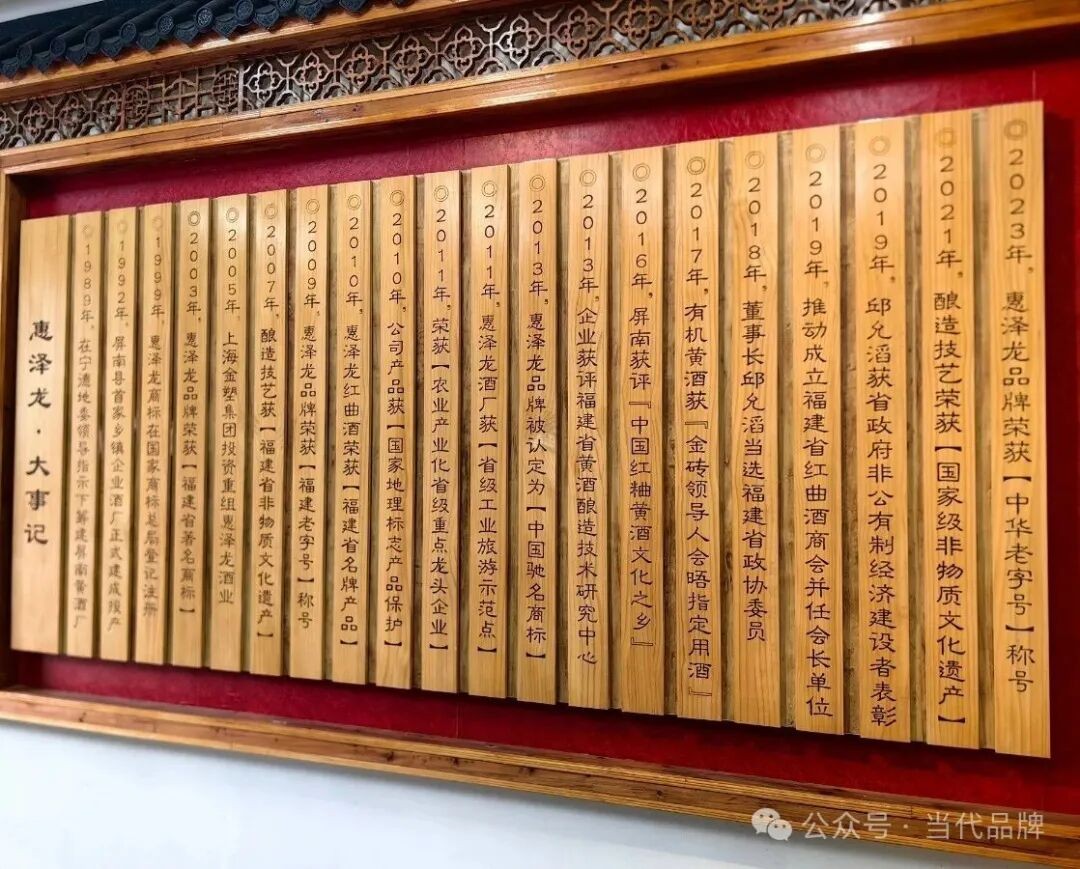 惠泽龙·大事记
◎1989年，在宁德地委领导指示下筹建屏南黄酒厂
◎1992年，屏南县首家乡镇企业酒厂正式建成投产
◎1999年，惠泽龙商标在国家商标总局登记注册
◎2003年，惠泽龙品牌荣获【福建省著名商标】
◎2005年，上海金塑集团投资重组惠泽龙酒业
◎2007年，酿造技艺获【福建省非物质文化遗产】
◎2009年，惠泽龙品牌荣获【福建老字号】称号
◎2010年，惠泽龙红曲酒荣获【福建省名牌产品】
◎2010年，公司产品获【国家地理标志产品保护】
◎2011年，荣获【农业产业化省级重点龙头企业】
◎2011年，惠泽龙酒厂获【省级工业旅游示范点】
◎2013年，惠泽龙品牌被认定为【中国驰名商标】
◎2013年，企业获评福建省黄酒酿造技术研究中心
◎2016年，屏南获评『中国红粬黄酒文化之乡』
◎2017年，有机黄酒获『金砖领导人会晤指定用酒』
◎2018年，董事长邱允滔当选福建省政协委员
◎2019年，推动成立福建省红曲酒商会并任会长单位
◎2019年，邱允滔获省政府非公有制经济建设者表彰
◎2021年，酿造技艺荣获【国家级非物质文化遗产】
◎2023年，惠泽龙品牌荣获【中华老字号】称号
公众号·当代品牌